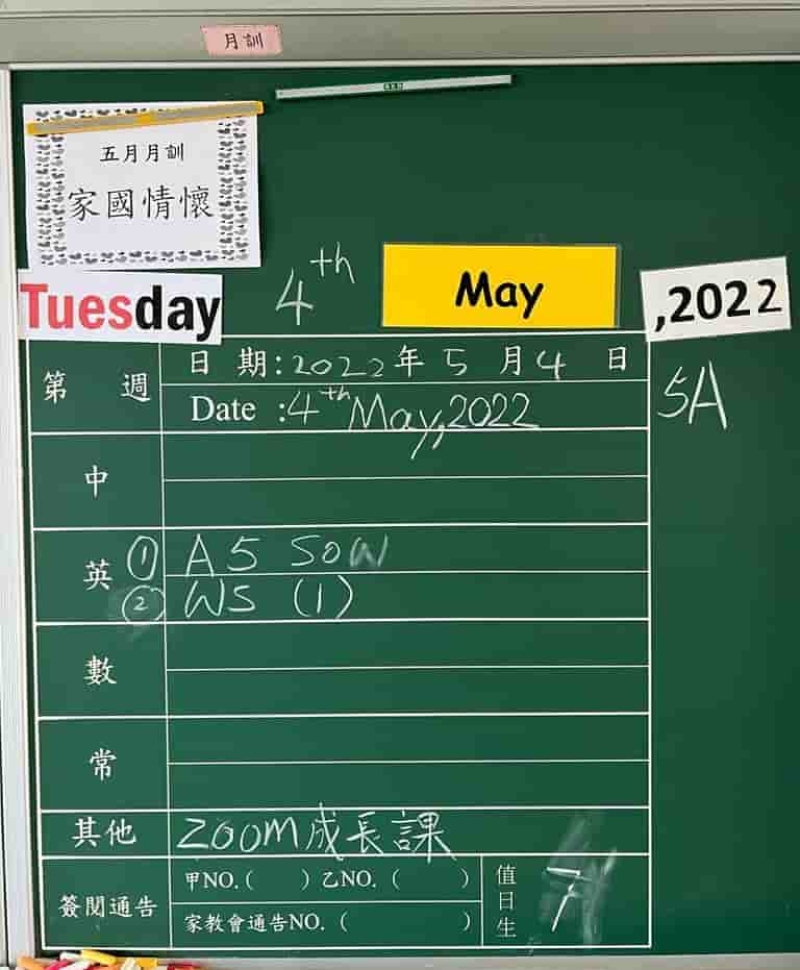 月訓
五月月訓
家國情懷
Tuesday 4th May ,2022
第 週 日 期:2022年5月4日
Date :4th May,2022
5A
中
英 ① A5 SOW
② WS (1)
數
常
其他 ZOOM成長課
簽閱通告 甲NO.( ) 乙NO.( )
家教會通告NO.( )
值日生 7